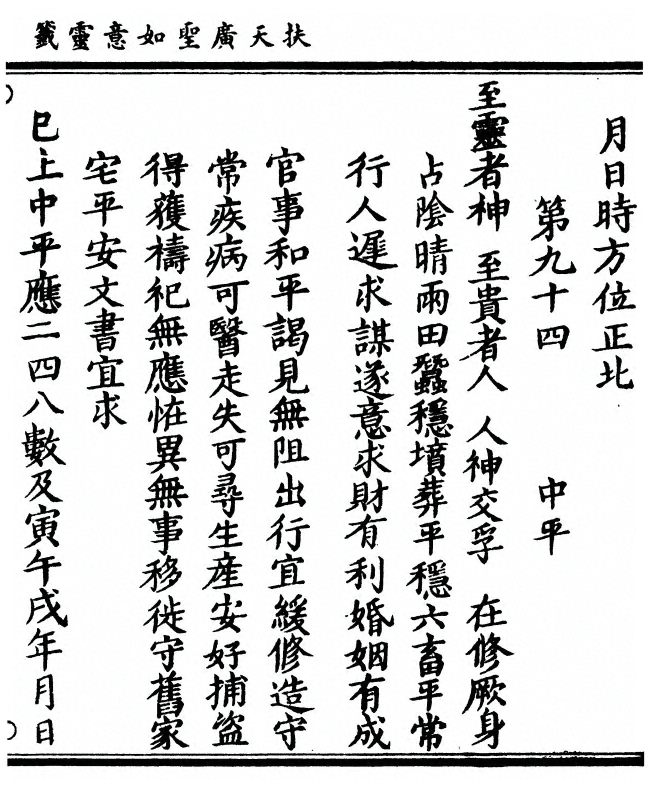 扶天廣聖如意靈籤
月日時方位正北
第九十四 中平
至靈者神 至貴者人 人神交孚 在修厥身
占陰晴雨田蠶穩墳葬平穩六畜平常
行人遲求謀遂意求財有利婚姻有成
官事和平謁見無阻出行宜緩修造守
常疾病可醫走失可尋生產安好捕盜
得獲禱祀無應怪異無事移徙守舊家
宅平安文書宜求
巳上中平應二四八數及寅午戌年月日